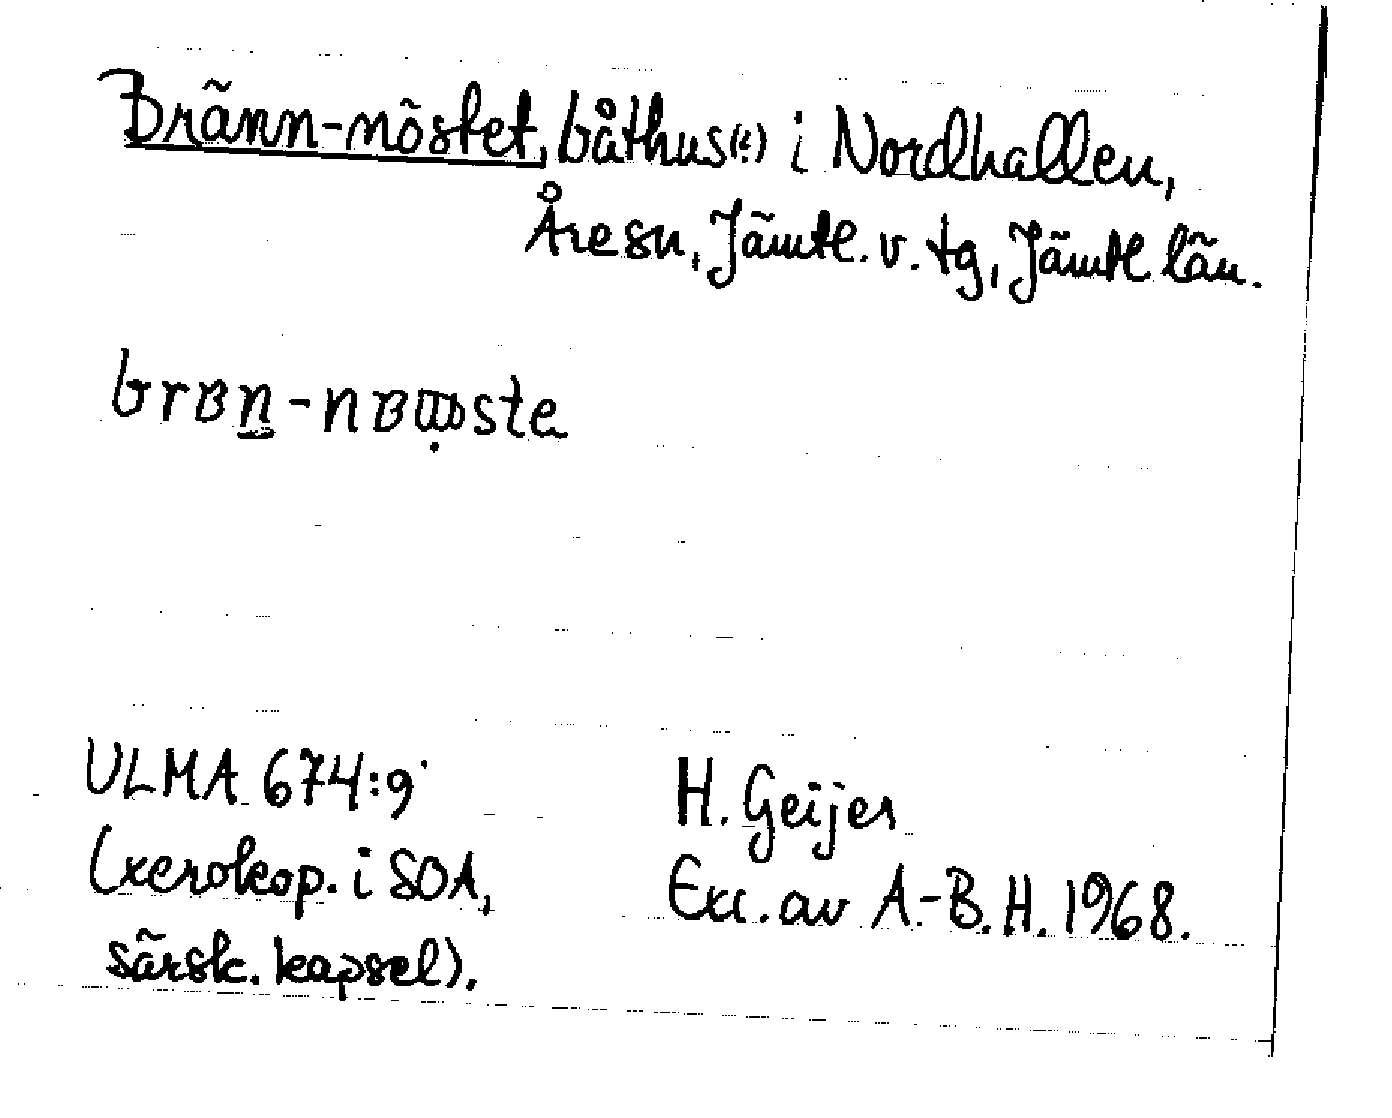 Bränn-nöstet, båthus(?) i Nordhallen,
Åre sn, Jämtl. v. tg, Jämtl län.
ULMA 674:9
(xerokop. i SOA,
särsk. kapsel).
H. Geijer
Exc. av A.-B. H. 1968.